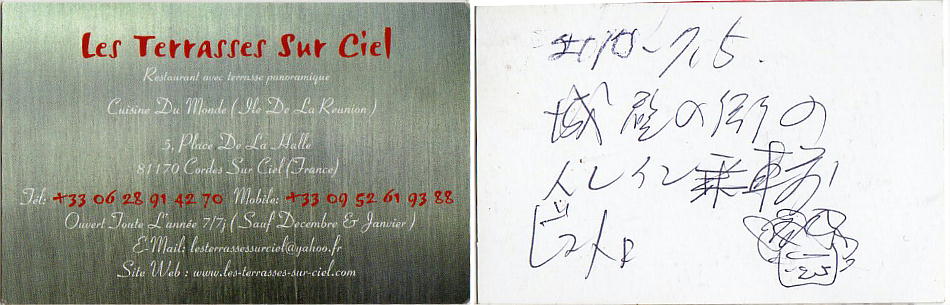 Les Terrasses Sur Ciel
Restaurant avec terrasse panoramique
Cuisine Du Monde ( Ile De La Reunion )
5, Place De La Halle
81170 Cordes Sur Ciel (France)
Tél: +33 06 28 91 42 70 Mobile: +33 09 52 61 93 88
Ouvert Toute L'année 7/7j ( Sauf Decembre & Janvier )
E-Mail: lesterrassessurciel@yahoo.fr
Site Web : www.les-terrasses-sur-ciel.com
7.5.
城壁の街の